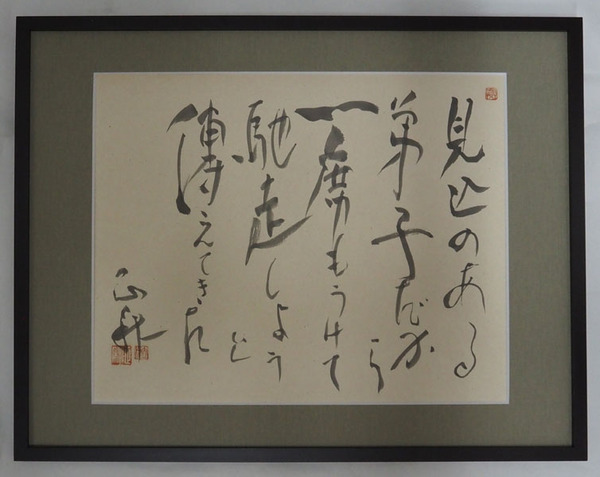 見込のある
弟子だから
一席もうけて
馳走しよう
と
傳えてきた